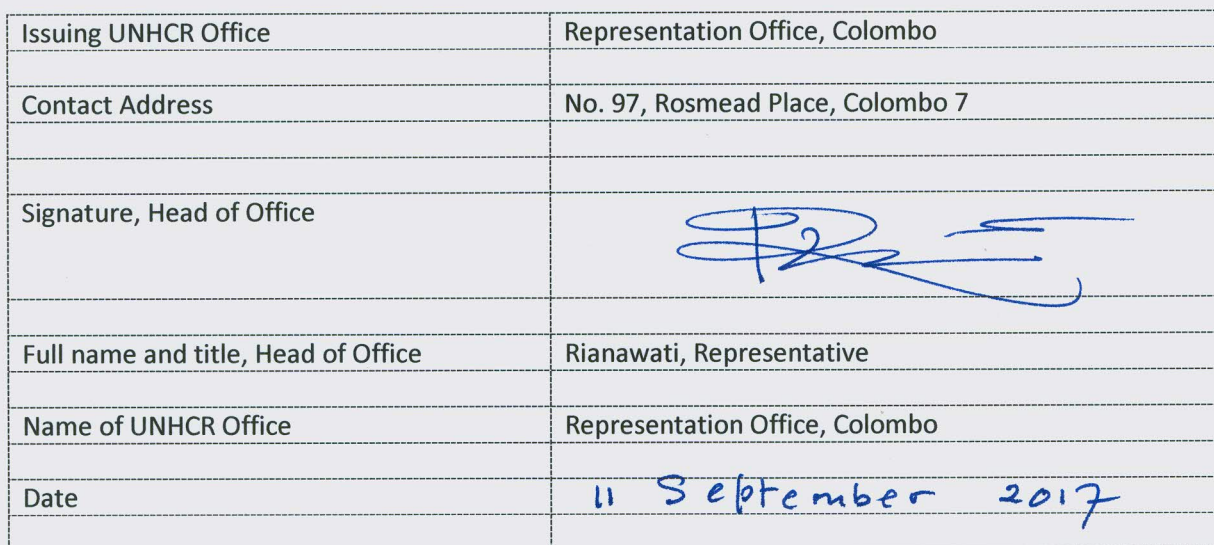 Issuing UNHCR Office Representation Office, Colombo
Contact Address No. 97, Rosmead Place, Colombo 7
Signature, Head of Office
Full name and title, Head of Office Rianawati, Representative
Name of UNHCR Office Representation Office, Colombo
Date 11 September 2017